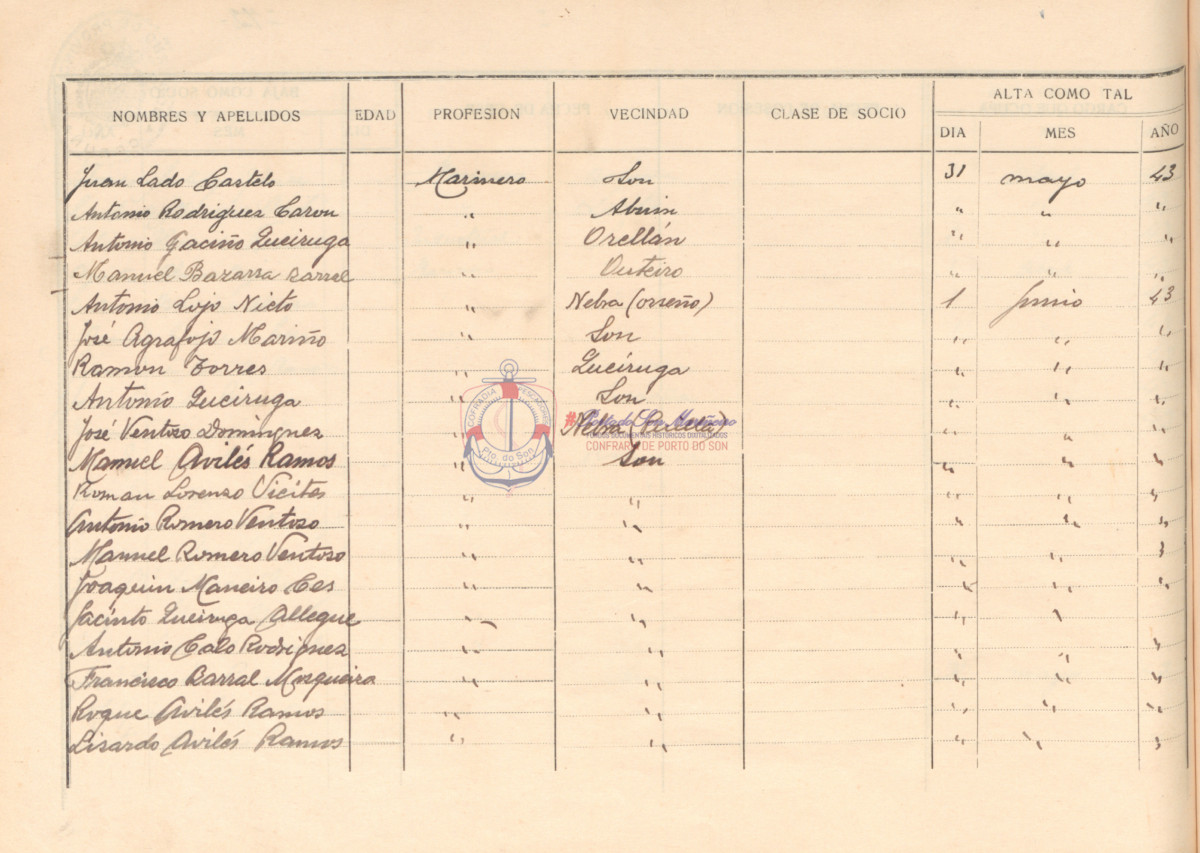 ALTA COMO TAL
NOMBRES Y APELLIDOS EDAD PROFESION VECINDAD CLASE DE SOCIO DIA MES AÑO
Juan Lado Castelo Marinero Son 31 mayo 43
Antonio Rodriguez Carou " Abuin " " "
Antonio Gaciño Queiruga " Orellán " " "
Manuel Bazarra Barral " Outeiro " " "
Antonio Lojo Nieto " Nebra (orseño) 1 Junio 43
José Agrafojo Mariño " Son " " "
Ramon Torres " Queiruga " " "
Antonio Queiruga " Son " " "
José Ventoso Dominguez " Nebra " " "
Manuel Avilés Ramos " Son " " "
Roman Lorenzo Vieites " " " " "
Antonio Romero Ventoso " " " " "
Manuel Romero Ventoso " " " " "
Joaquin Maneiro Ces " " " " "
Jacinto Queiruga Allegue " " " "
Antonio Calo Rodriguez " " " " "
Francisco Barral Mosqueira " " " " "
Roque Avilés Ramos " " " " "
Lisardo Avilés Ramos " " " " "
COFRADIA
Pto. do Son
CONFRARÍA DE PORTO DO SON